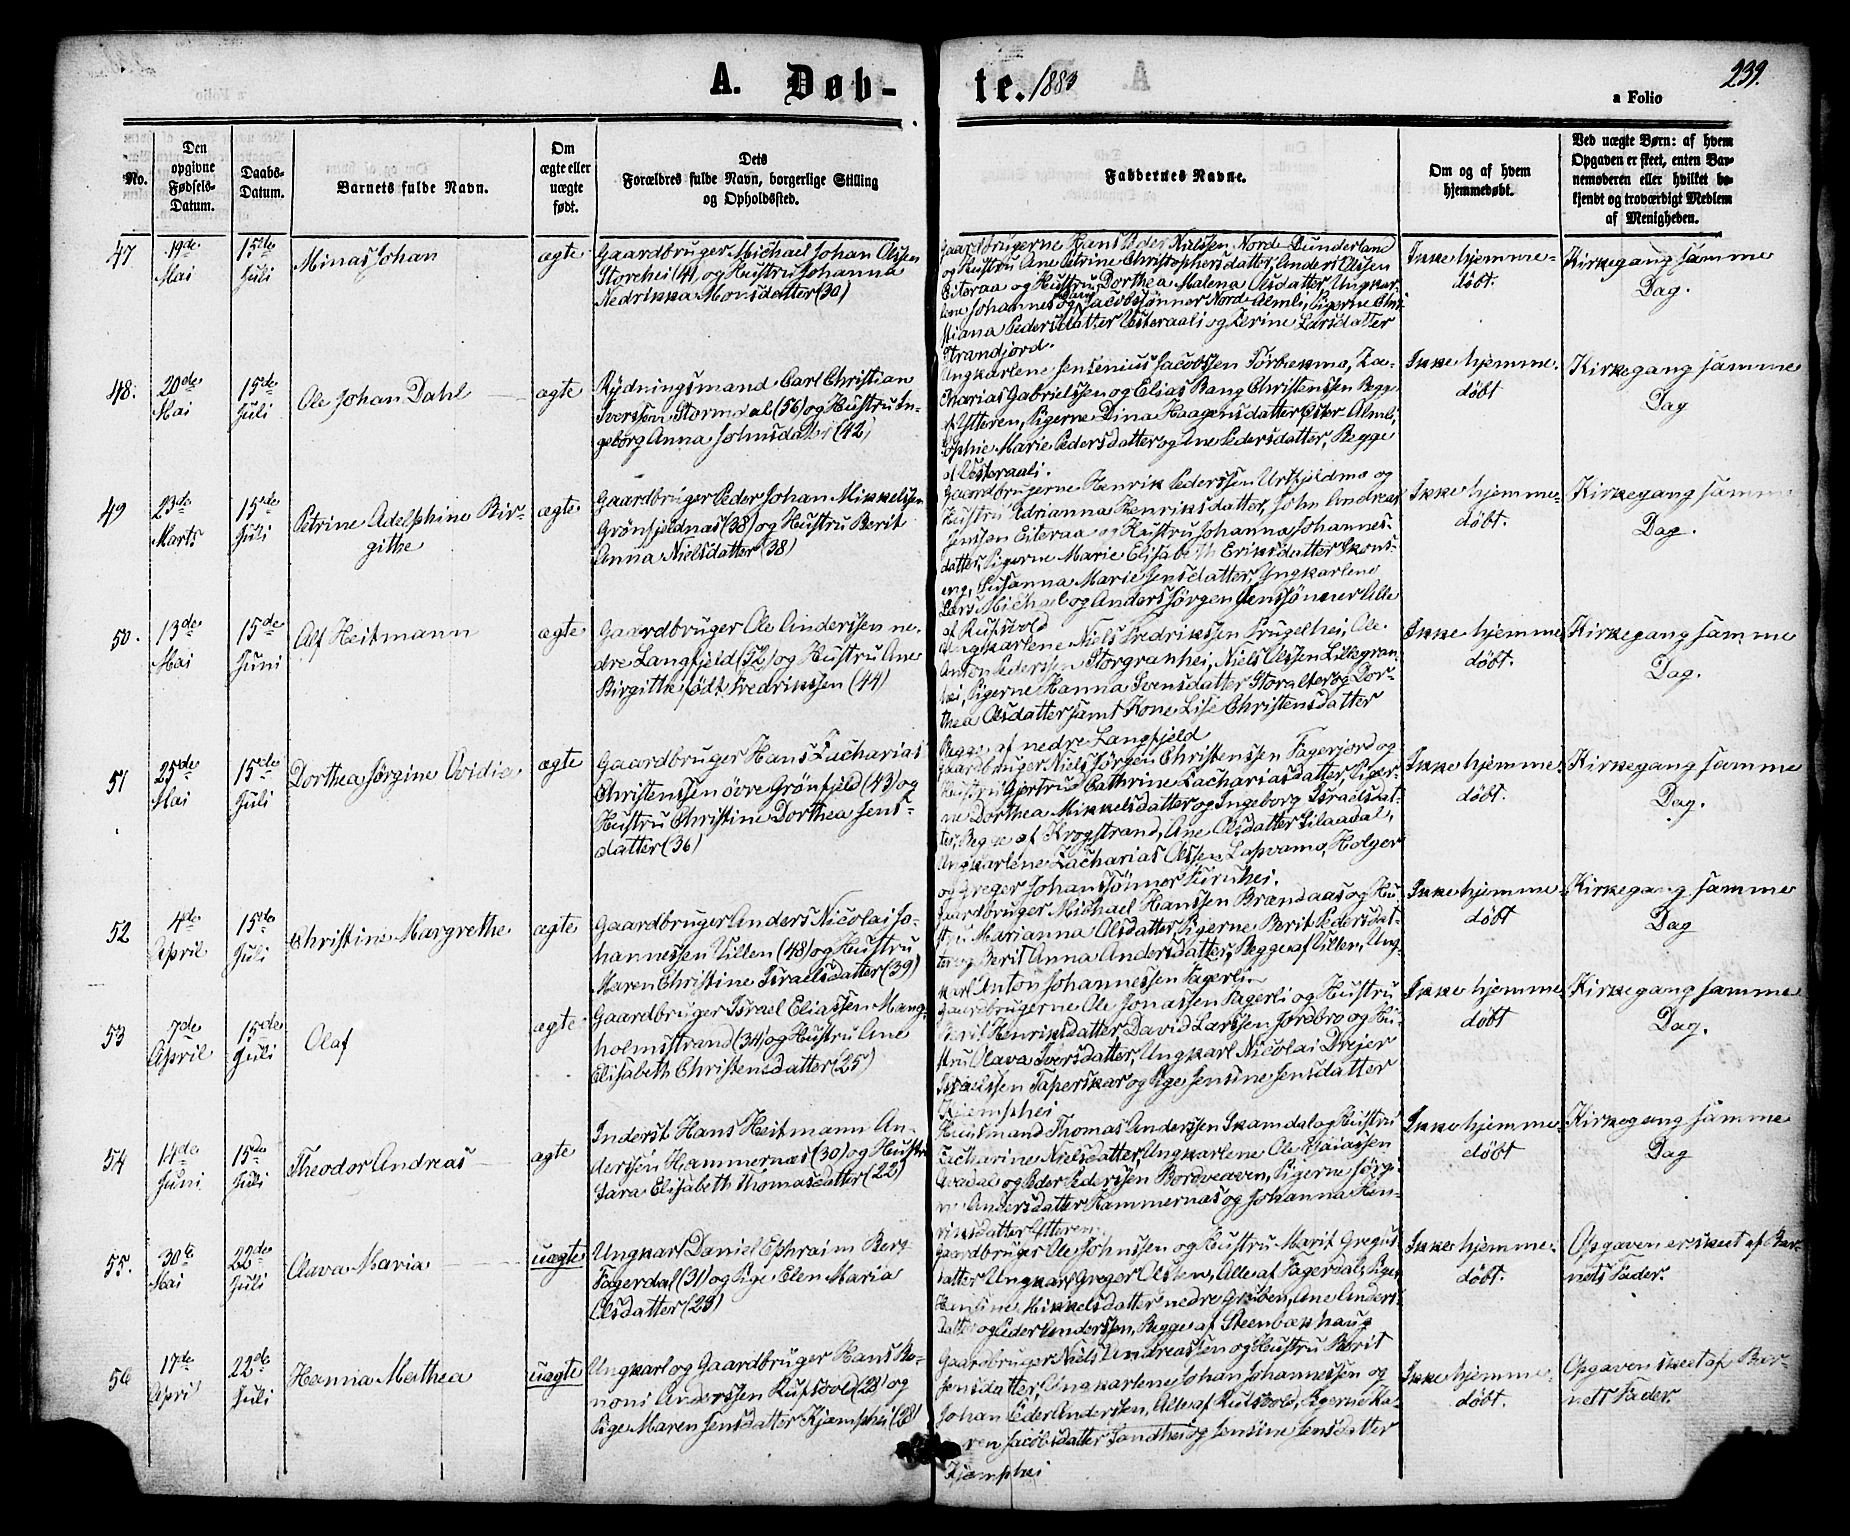 A. Døb-
te. 1883
239.
a Folio
No.
Den
opgivne
Fødsels-
Datum.
Daabs-
Datum.
Barnets fulde Navn.
Om
ægte eller
uægte
født.
Dets
Forældres fulde Navn, borgerlige Stilling
og Opholdssted.
Faddernes Navne.
Om og af hvem
hjemmedøbt.
Ved uægte Børn: af hvem
Opgaven er skeet, enten Bar-
nemoderen eller hvilket be-
kjendt og troværdigt Medlem
af Menigheden.
47
19de
Mai
15de
Juli
Minas Johan
ægte
Gaardbruger Michael Johan Olssen
Storehei (4) og Hustru Johanna
Nedrikka Monsdatter (30)
Gaardbrugerne Hans Peder Nielssen Nord-Dunderland
og Hustru Ane Petrine Christophersdatter, Anders Olssen
Eiteraa og Hustru Dorthea Malena Olsdatter, Ungkar-
lene Johannes og Jacobsønner Nord-Almli, Pigerne Chri-
stiana Pedersdatter Vesteraali og Perine Larsdatter
Strandjord.
Ikke hjemme-
døbt.
Kirkegang samme
Dag.
48.
20de
Mai
15de
Juli
Ole Johan Dahl
ægte
Rydningsmand Carl Christian
Iverssen Stormdal (56) og Hustru In-
geborg Anna Johnsdatter (42)
Ungkarlene Jensenius Jacobssen Tørbekmo, Za-
charias Gabrielssen og Elias Bang Christenssen Begge
af Ytteren, Pigerne Dina Haagensdatter Almli,
Sophie Marie Pedersdatter og Ane Pedersdatter, Begge
af Vesteraali.
Ikke hjemme-
døbt
Kirkegang samme
Dag
49
23de
Marts
15de
Juli
Petrine Adelphine Bir-
githe
ægte
Gaardbruger Peder Johan Mikkelssen
Grønfjeldnæs (38) og Hustru Berit
Anna Nielsdatter (38)
Gaardbrugerne Henrik Pederssen Urtfjeldmo og
Hustru Edrianna Henriksdatter, John Andreas
Jenssen Eiteraa og Hustru Johanna Johannes-
datter, Pigerne Marie Elisabeth Eriksdatter Skons-
eng, Susanna Marie Jensdatter, Ungkarlene
Lars Michael og Anders Jørgen Jenssønner Alle
af Rufsvold
Ikke hjemme-
døbt.
Kirkegang samme
Dag.
50.
13de
Mai
15de
Juni
Alf Heitmann
ægte
Gaardbruger Ole Anderssen ne-
dre Langfjeld (52) og Hustru Ane
Birgithe født Fredrikssen (44)
Ungkarlene Niels Fredrikssen Prugelhei, Ole
Anton Pederssen Storgranhei, Niels Olssen Lillegran-
hei, Pigerne Hanna Svensdatter Storalter og Dor-
thea Olsdatter samt Kone Lise Christensdatter
Begge af nedre Langfjeld
Ikke hjemme
døbt.
Kirkegang samme
Dag.
51
25de
Mai
15de
Juli
Dorthea Jørgine Ovidie
ægte
Gaardbruger Hans Zacharias
Christenssen øvre Grønfjeld (43) og
Hustru Christine Dorthea Jens-
datter (36)
Gaardbruger Niels Jørgen Christenssen Fagerjord og
Hustru Gjertrud Cathrine Zachariasdatter, Piger-
ne Dorthea Mikkelsdatter og Ingeborg Israelsdat-
ter, Begge af Krogstrand, Ane Olsdatter Lilaadal,
Ungkarlene Zacharias Olssen Lapvamo, Holger
og Greger Johanssønner Furuhei.
Ikke hjemme-
døbt.
Kirkegang samme
Dag.
52
4de
April
15de
Juli
Christine Margrethe
ægte
Gaardbruger Anders Nicolai Jo-
hannessen Villen (48) og Hustru
Maren Christine Israelsdatter (39)
Gaardbruger Michael Hanssen Brændaas og Hu-
stru Marianna Olsdatter, Pigerne Berit Pedersdat-
ter og Berit Anna Andersdatter, Begge af Villen, Ung-
karl Anton Johannessen Fagerli
Ikke hjemme
døbt
Kirkegang samme
Dag
53
7de
April
15de
Juli
Olaf
ægte
Gaardbruger Israel Eliassen Mang-
holmsstrand (34) og Hustru Ane
Elisabeth Christensdatter (25)
Gaardbrugerne Ole Jonassen Fagerli og Hustru
Berit Henriksdatter, David Larssen Jordbro og Hu-
stru Olava Iversdatter, Ungkarl Nicolai Drejer
Israelssen Taperskar og Pige Jensine Jensdatter
Kjemphei
Ikke hjemme-
døbt
Kirkegang samme
Dag.
54
14de
Juni
15de
Juli
Theodor Andreas
ægte
Inderst Hans Heitmann An-
derssen Hammernæs (30) og Hustru
Sara Elisabeth Thomasdatter (22)
Huusmand Thomas Anderssen Skamdal og Hustru
Zacharine Nielsdatter, Ungkarlene Ole Esaiassen
Evadal og Peder Pederssen Bordvedaven, Pigerne Jørgi-
ne Andersdatter Hammernæs og Johanna Hen-
riksdatter Ytteren.
Ikke hjemme-
døbt
Kirkegang samme
Dag
55.
30te
Mai
22de
Juli
Olava Maria
uægte
Ungkarl Daniel Ephraim Berg
Fagerdal (31) og Pige Elen Maria
Olsdatter (23)
Gaardbruger Ole Johnssen og Hustru Marit Gregus-
datter Ungkarl Greger Olssen, Alle af Fagerdal, Pigen
Hensine Mikkelsdatter nedre Gruben, Ane Anders-
datter og Peder Anderssen, Begge af Steenbækhaug
Ikke hjemme-
døbt.
Opgaven er skeet af Bar-
nets Fader.
56
17de
April
22de
Juli
Hanna Mathea
uægte
Ungkarl og Gaardbruger Hans Bo-
noni Anderssen Rufsvold (23) og
Pige Maren Jensdatter Kjæmphei (28)
Gaardbruger Niels Andreassen og Hustru Berit
Jensdatter, Ungkarlene Johan Johannessen og
Johan Peder Anderssen, Alle af Rufsvold, Pigerne Ka-
ren Jacobsdatter Sandhei og Jensine Jensdatter
Kjæmphei
Ikke hjemme-
døbt.
Opgaven skeet af Bar-
nets Fader.